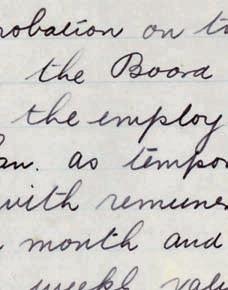 robation on t
the Board
the employ
an. as tempor
with remuner
month and
weekl valu